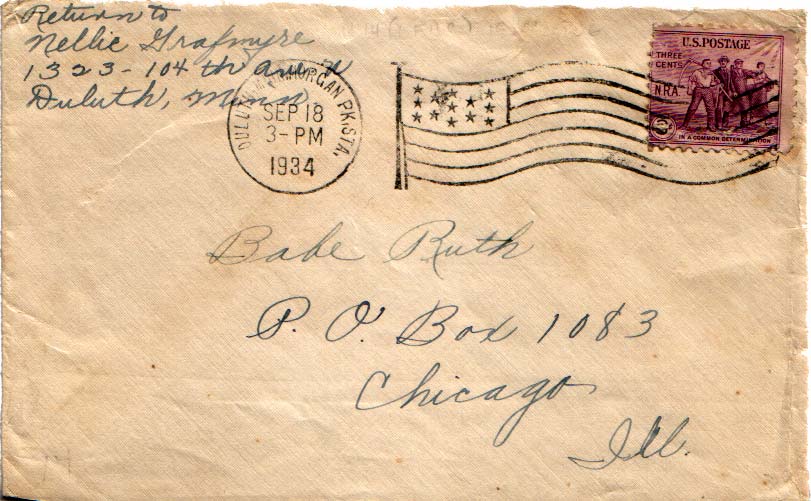 Return to
Nellie Grafmyre
1323-104th Ave W
Duluth, Minn
DULUTH, MINN. MORGAN PK. STA.
SEP 18
3-PM
1934
U.S. POSTAGE
THREE
CENTS
NRA
3
IN A COMMON DETERMINATION
Babe Ruth
P. O. Box 1083
Chicago
Ill.